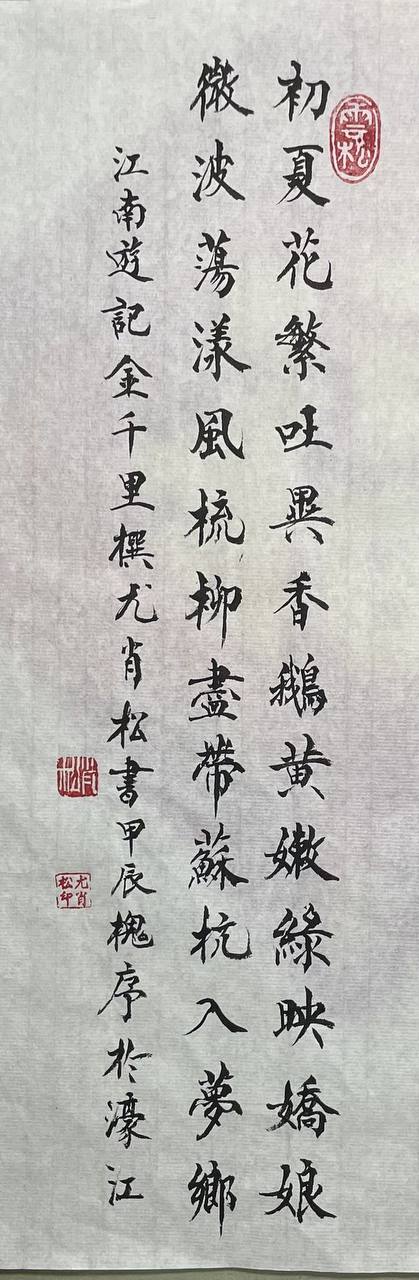 雲松
初夏花繁吐異香鵝黄嫩綠映嬌娘
微波蕩漾風梳柳盡帶蘇杭入夢鄉
江南遊記金千里撰尤肖松書甲辰槐序於濠江
尤肖松印